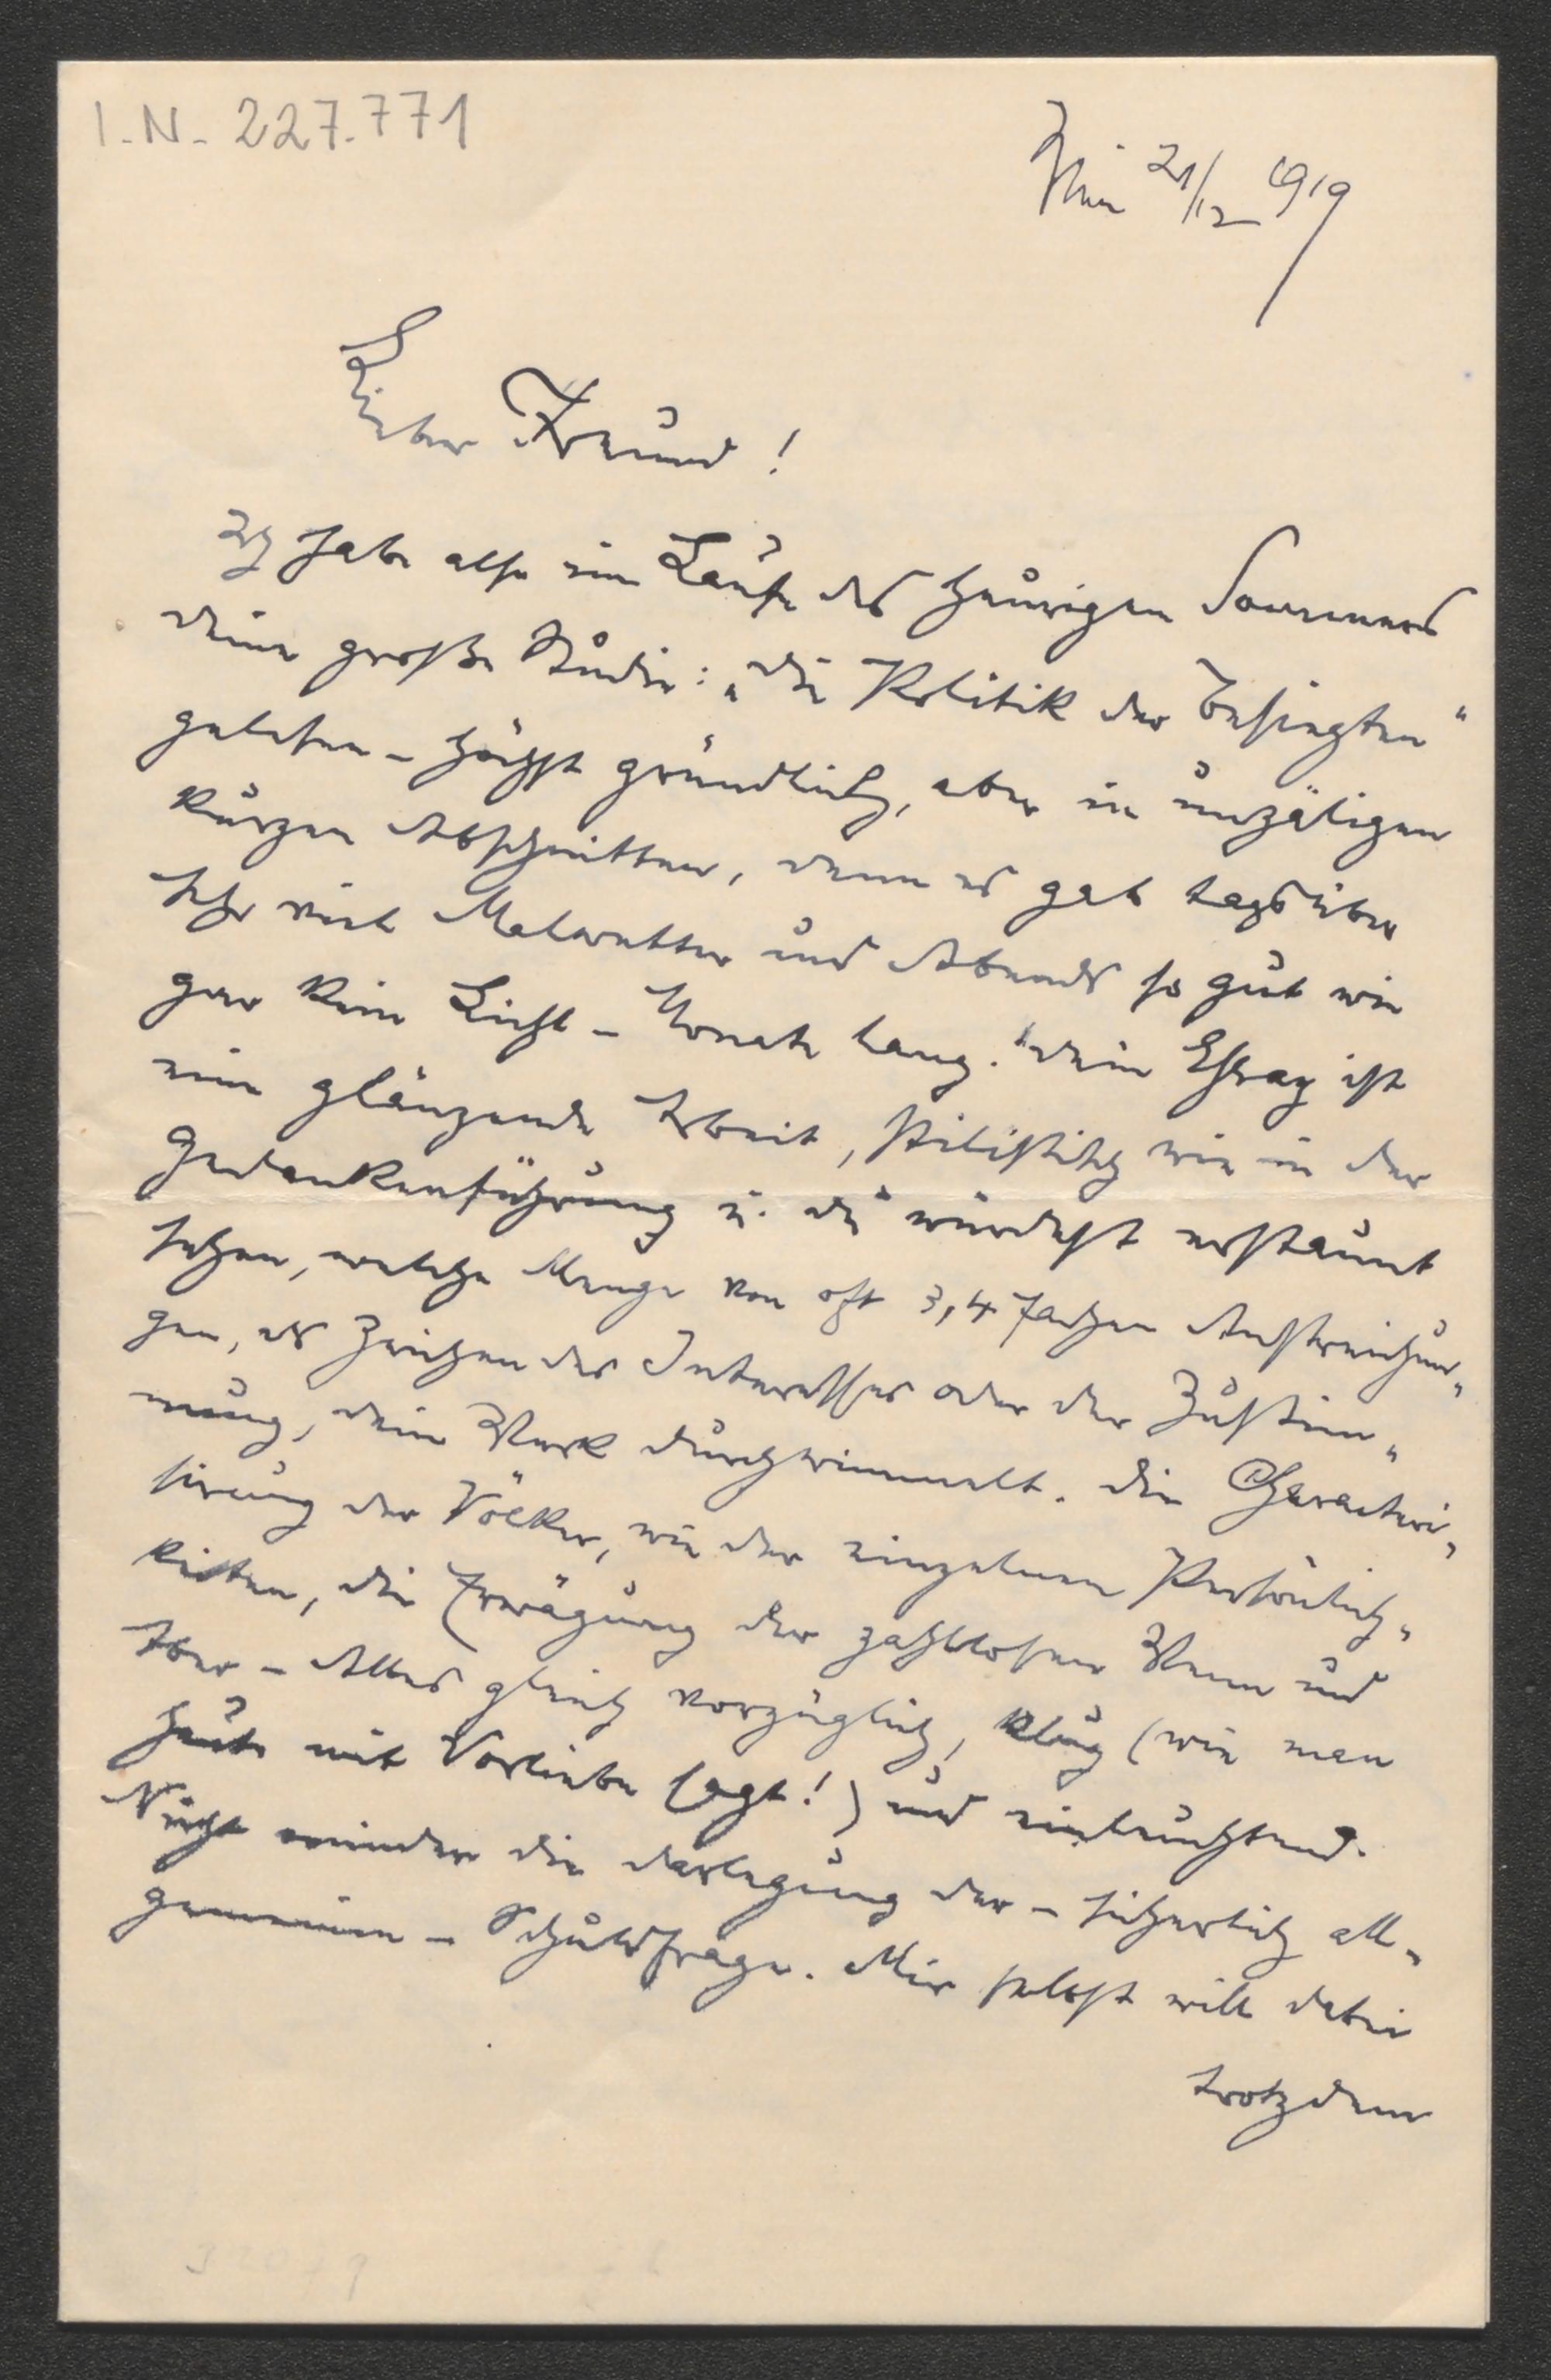 I.N. 227.771
Wien 21/12 1919
Lieber Freund!
Ich habe also im Laufe des heurigen Sommers
deine große Studie: „Die Politik der Besiegten“
gelesen – höchst gründlich, aber in unzäligen
kurzen Abschnitten, denn es gab tagsüber
sehr viel Malwetter und Abends so gut wie
gar kein Licht – Monate lang. Dein Essay ist
eine glänzende Arbeit, stilistisch wie in der
Gedankenführung u. du würdest erstaunt
sehen, welche Menge von oft 3, 4 fachen Anstreichun„
gen, als Zeichen des Interesses oder der Zustim„
mung, dein Werk durchwimmelt. Die Characteri„
sirung der Völker, wie der einzelnen Persönlich„
keiten, die Erwägung der zahllosen Wenn und
Aber – Alles gleich vorzüglich, klug (wie man
heute mit Vorliebe sagt!) und einleuchtend.
Nicht minder die Darlegung der – sicherlich all„
gemeinen – Schuldfrage. Mir selbst will dabei
trotzdem